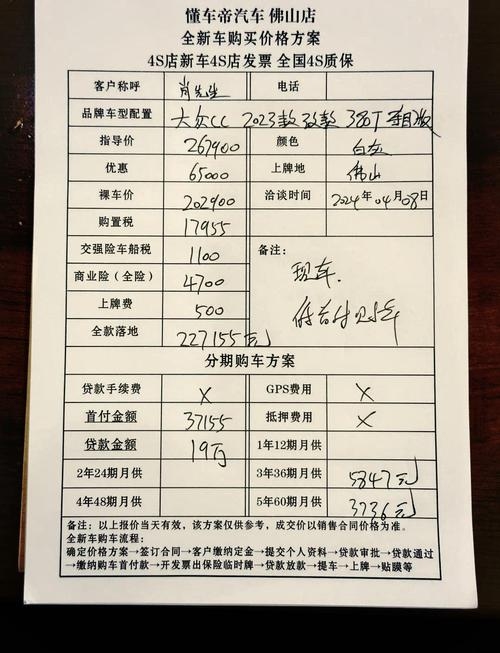 懂车帝汽车 佛山店
全新车购买价格方案
4S店新车4S店发票 全国4S质保
客户称呼 肖先生 电话
品牌车型配置 大众CC 2023款 改款 380T 夺目版
指导价 267900 颜色 白/灰
优惠 65000 上牌地 佛山
裸车价 202900 洽谈时间 2024年04月08日
购置税 17955
交强险车船税 1100 备注:
商业险（全险） 4700 现车.
上牌费 500
全款落地 227155元
分期购车方案
贷款手续费 X GPS费用 X
首付金额 37155 抵押费用 X
贷款金额 19万 1年12期月供
2年24期月供 3年36期月供 5847元
4年48期月供 5年60期月供 3736元
备注：以上报价当天有效，该方案仅供参考，成交价以销售合同价格为准。
全新车购车流程:
确定价格方案→签订合同→客户缴纳定金→提交个人资料→贷款审批→贷款通过
→缴纳购车首付款→开发票出保险临时牌→贷款放款→提车→上牌→贴膜等